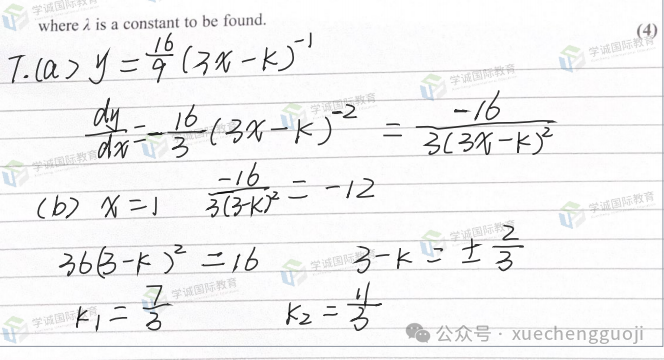 where λ is a constant to be found.
(4)
7.(a) y = 16/9 (3x-k)^-1
dy/dx = -16/3 (3x-k)^-2 = -16/3(3x-k)^2
(b) x=1 -16/3(3-k)^2 = -12
36(3-k)^2 = 16 3-k = ± 2/3
k1 = 7/3 k2 = 11/3
学诚国际教育
公众号 · xuechengguoji